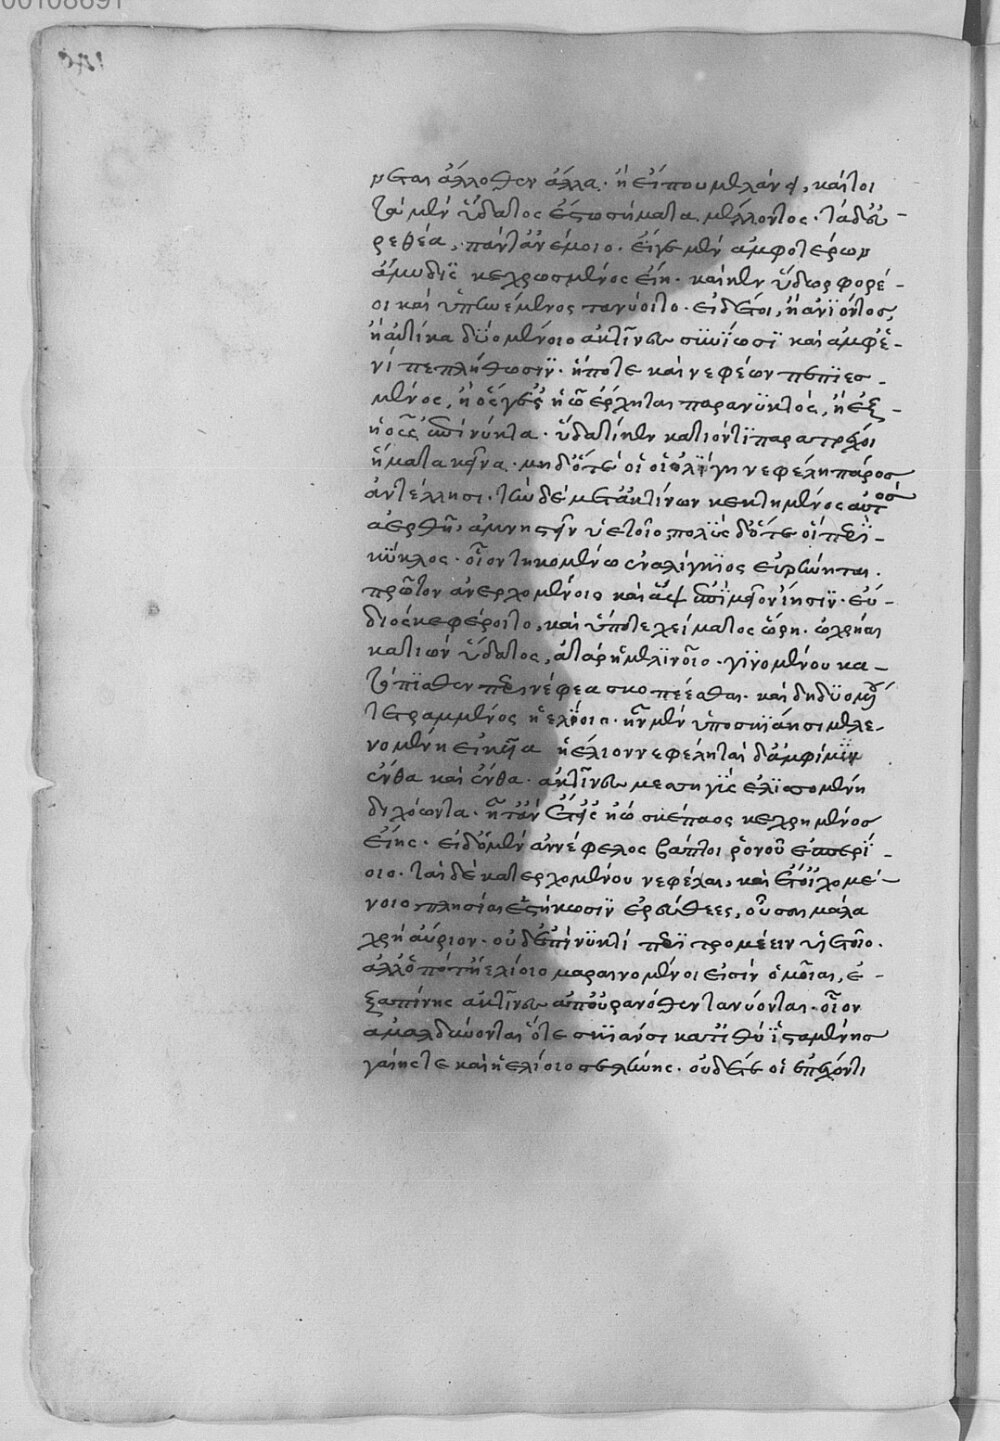 ρεται ἄλλοθεν ἄλλα. ἢ εἴ που μελανεῖ, καίτοι
τὰ μὲν ὕδατος ἔστω σήματα μέλλοντος. τὰ δ' ἐ-
ρεθέα, πάντ' ἀνέμοιο. εἴγε μὲν ἀμφοτέρων
ἄμυδις κεχρωσμένος εἴη. καίκεν ὕδωρ φορέ-
οι καὶ ὑπηνέμιος τανύοιτο. εἰ δέ οἱ, ἢ ἀνιόντος,
ἢ αὐτίκα δυομένοιο ἀκτῖνες συνίωσι καὶ ἀμφ' ἑ-
νὶ πεπλήθωσιν. ἤποτε καὶ νεφέων πεπιεσ-
μένος, ἢ ὅ γ' ἐς ἠῶ ἔρχηται παρὰ νυκτός, ἢ ἐξ-
ηοῦς ἐπὶ νύκτα. ὕδατί κεν κατιόντι παρατρέχοι
ἤματα κεῖνα. μηδ' ὅτε οἱ ὀλίγη νεφέλη πάρος
ἀντέλλησι. τὴν δὲ μετ' ἀκτίνων κεκτημένος αὐτὸς
ἀερθῆ, ἀμνηστεῖν ὑετοῖο, πολὺς δ' ὅτε οἱ περὶ
κύκλος. οἷον τηκομένω ἐναλίγκιος εὐρύνηται.
πρῶτον ἀνερχομένοιο καὶ ἂψ ἐπὶ μεῖον ἴησιν. εὔ-
διός κε φέροιτο, καὶ εἴποτε χείματος ὥρη. ὠχρήσαι
κατιὼν ὕδατος, ἀτὰρ ἡμερινοῖο. γινομένου κα-
τόπισθεν περὶ νέφεα σκοπέεσθαι. καδδὴ δυομένου
τετραμμένος ἠελίοιο. ἢν μὲν ὑποσκιάησι μελε-
νομένη εἰκυῖα ἠέλιον νεφέλη ταὶ δ' ἀμφί μιν
ἔνθα καὶ ἔνθα. ἀκτῖνες μεσηγὺς ἑλισσομένη
διχόωντα. ἦ τ' ἂν ἔτ' εἰς ἠῶ σκέπαος κεχρημένος
εἴης. εἰ δ' ὁ μὲν ἀννέφελος βάπτοι ῥόνου ἑσπερί-
οιο. ταὶ δὲ κατερχομένου νεφέλαι, καὶ ἔτ' οἰχομέ-
νοιο πλησίαι ἑστήκωσιν ἐρεύθεες, οὔ σαι μάλα
χρὴ αὔριον. οὐδ' ἐπὶ νυκτὶ περιτρομέειν ὑετοῖο.
ἀλλ' ὁπότ' ἠελίοιο μαραινομένοι εἰσὶν ὁμοῖαι, ἐ-
ξαπίνης ἀκτῖνες ἀπ' οὐρανόθεν τανύονται. οἷον
ἀμαλδύνονται ὅτε σκιάησι κατ' ἰθὺ ἱσταμένης
γαίης τε καὶ ἠελίοιο σελήνης. οὐδ' ἔτε οἱ ἐπέχοντι